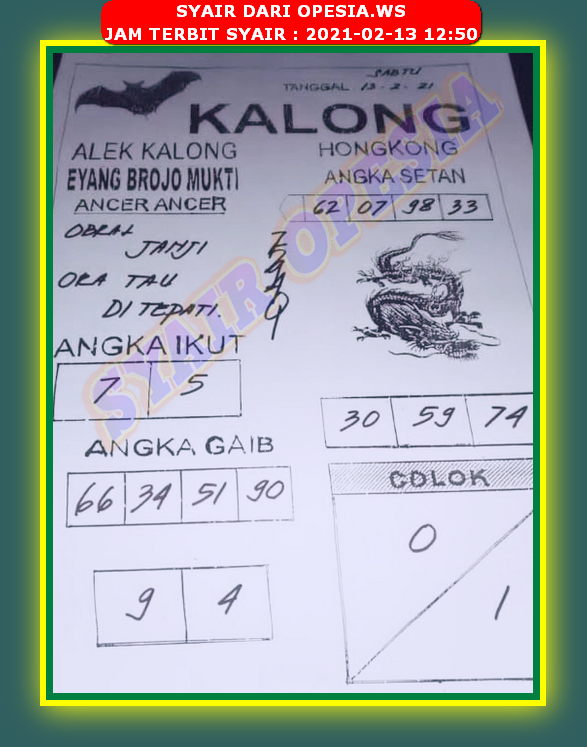 SYAIR DARI OPESIA.WS
JAM TERBIT SYAIR : 2021-02-13 12:50
SABTU
TANGGAL 13-2-21
KALONG
ALEK KALONG
HONGKONG
EYANG BROJO MUKTI
ANGKA SETAN
ANCER ANCER
62 07 98 33
OBRAL
JANJI
ORA TAU
DI TEPATI.
SYAIR OPESIA
ANGKA IKUT
7 5
30 59 74
ANGKA GAIB
66 34 51 90
COLOK
0
1
9 4